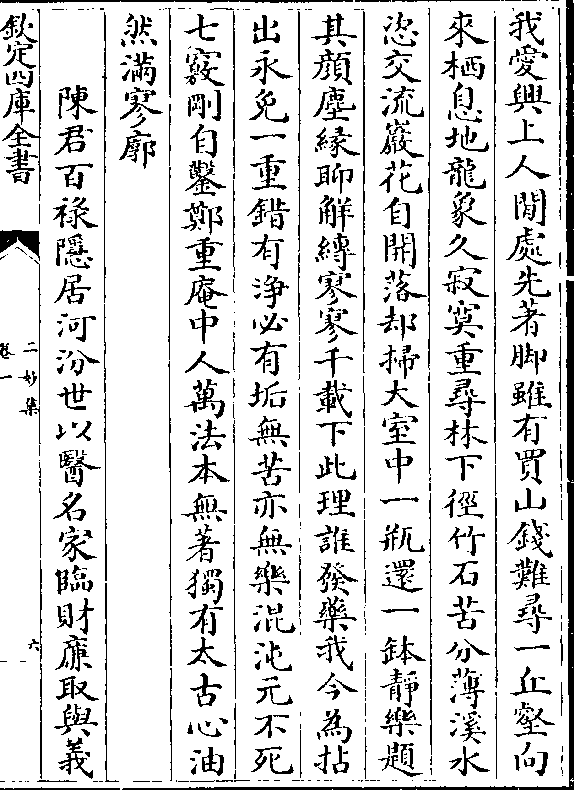 我愛興上人閒處先著脚雖有買山錢難尋一丘壑向
來栖息地龍象久寂寞重尋林下徑竹石苦分薄溪水
恣交流巖花自開落却掃大室中一瓶還一鉢靜樂題
其顔塵緣聊解縛寥寥千載下此理誰發藥我今為拈
出永免一重錯有浄必有垢無苦亦無樂混沌元不死
七竅剛自鑿鄭重庵中人萬法本無著獨有太古心油
然滿寥廓
陳君百祿隱居河汾世以醫名家臨財亷取與義
欽定四庫全書
二妙集
卷一
六